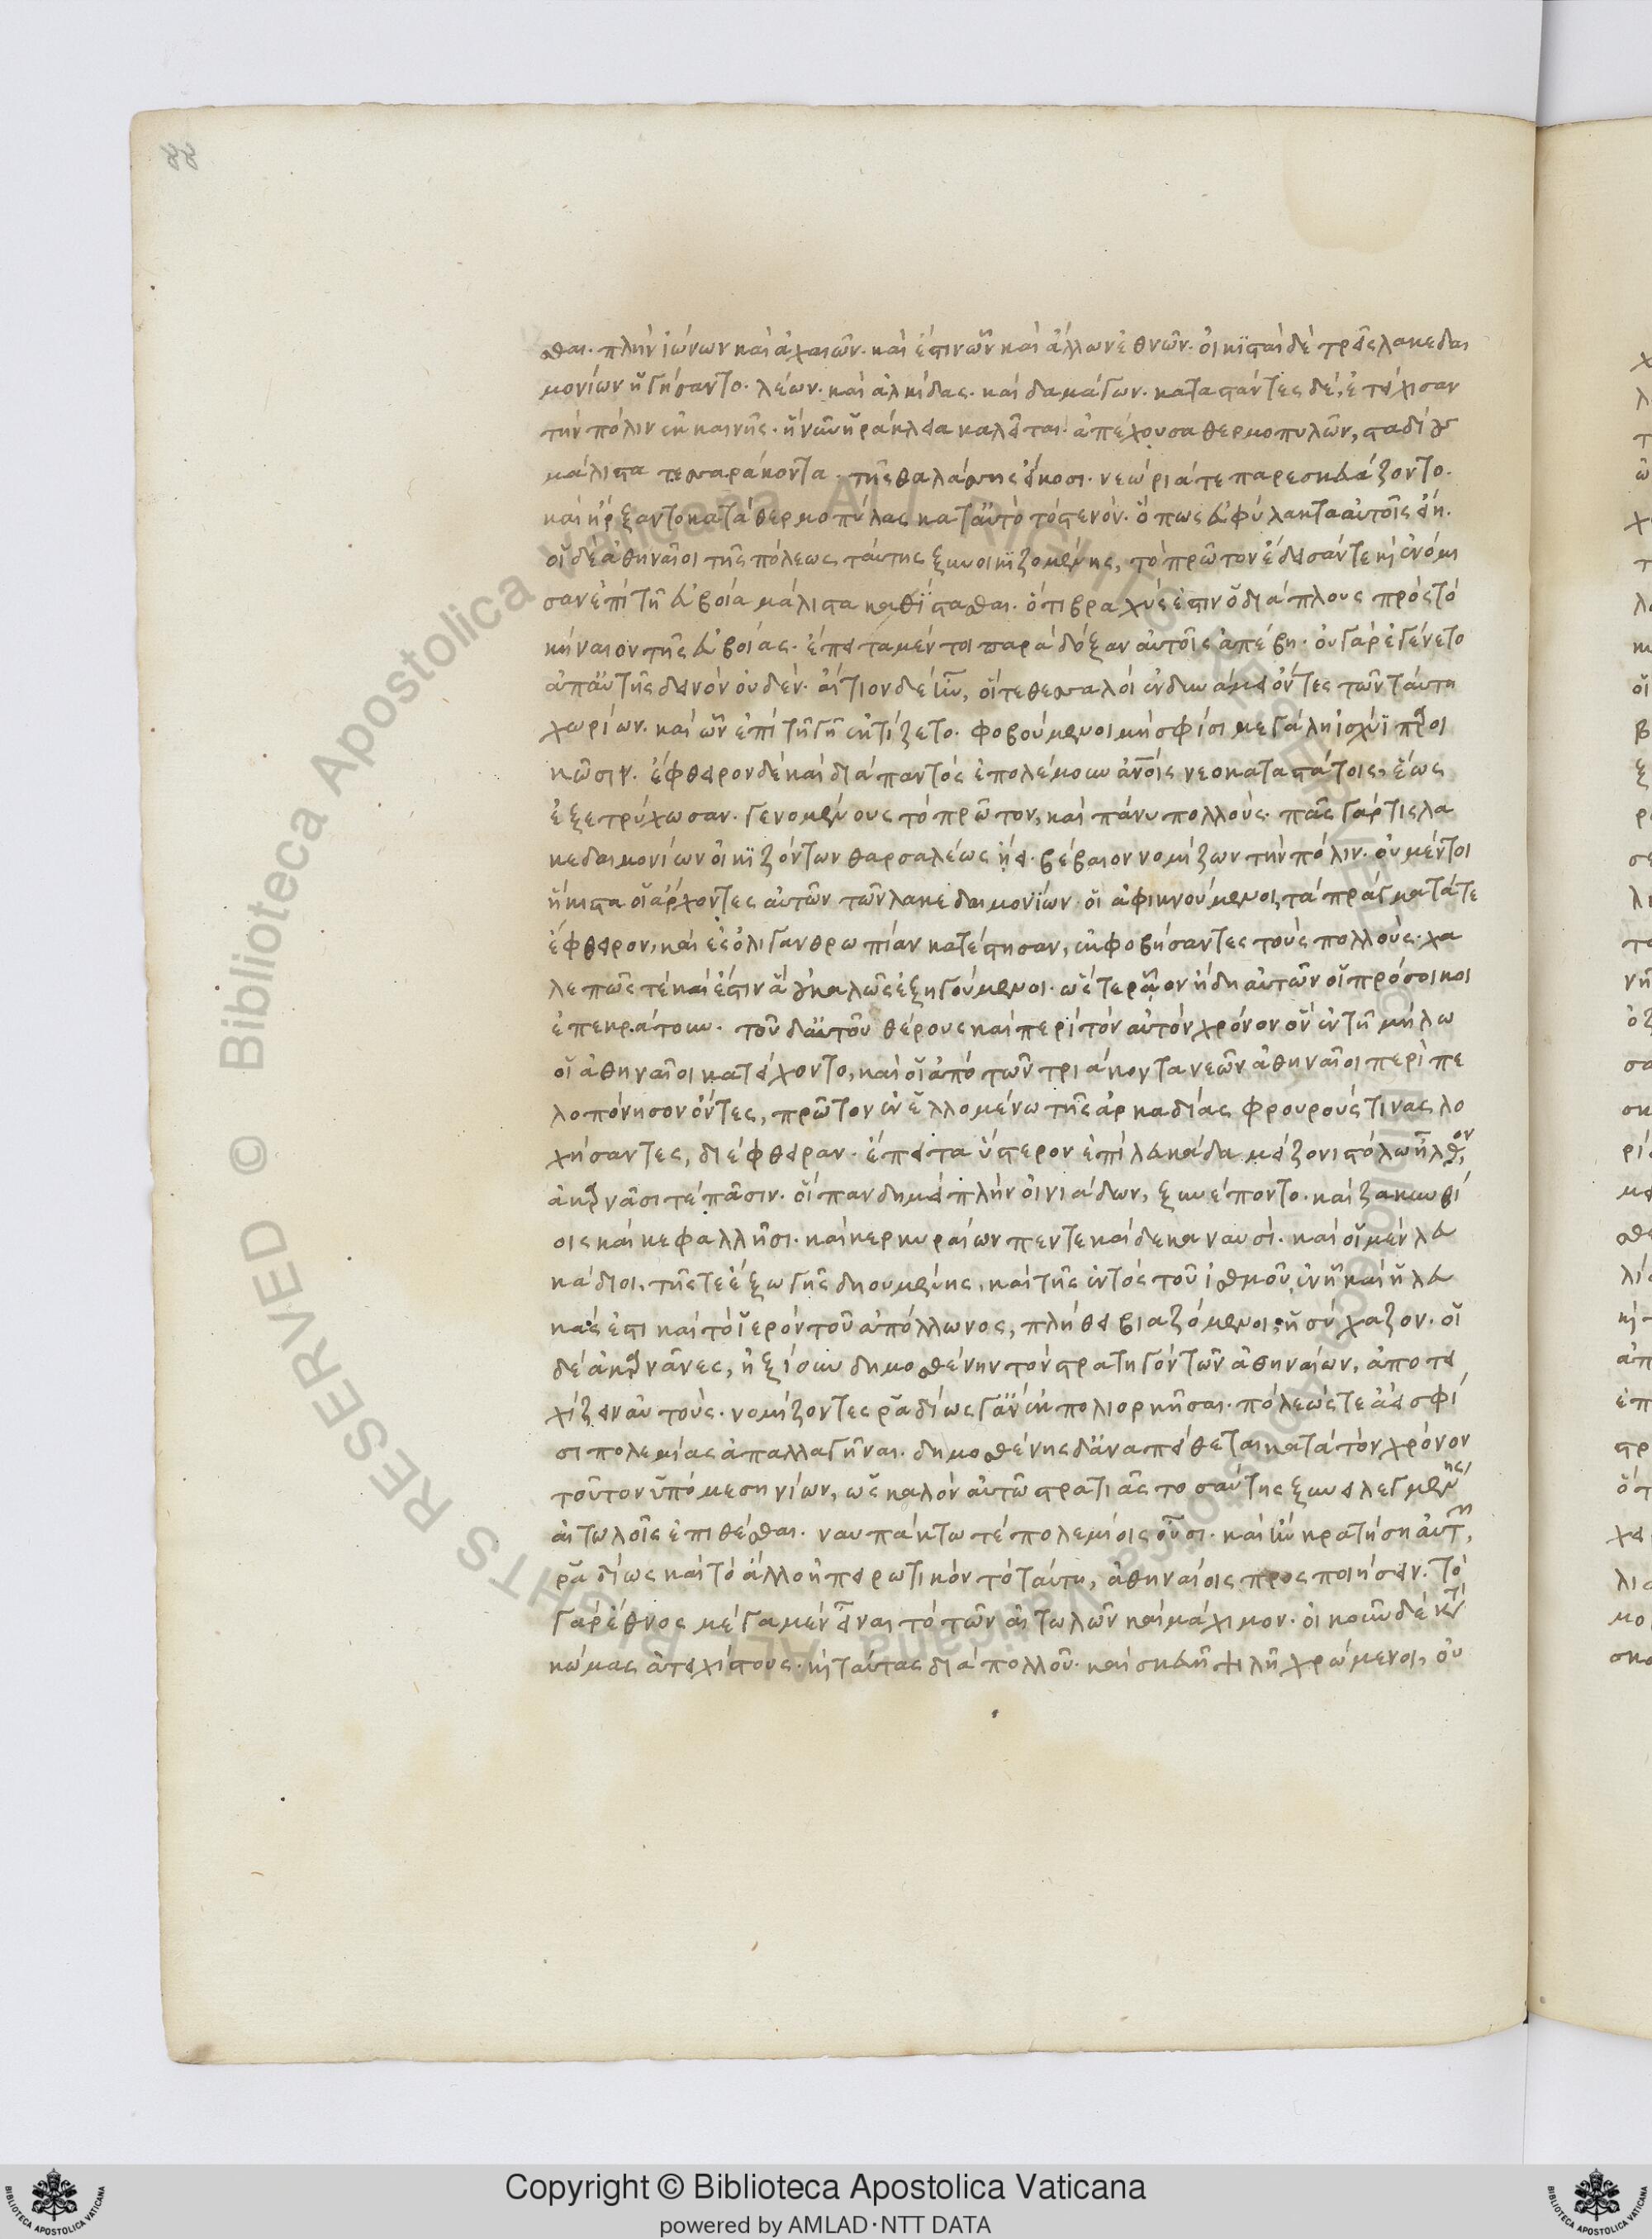 88
σθαι. πλὴν ἰώνων καὶ ἀχαιῶν. καὶ ἔστιν ὧν καὶ ἄλλων ἐθνῶν. οἰκϊσταὶ δὲ τρεῖς λακεδαι
μονίων ἡγήσαντο. λέων. καὶ ἀλκίδας. καὶ δαμάγων. καταστάντες δέ, ἐτείχισαν
τὴν πόλιν ἐκ καινῆς. ἣ νῦν ἡράκλεια καλεῖται. ἀπέχουσα θερμοπυλῶν, σταδίους
μάλιστα τεσσαράκοντα. τῆς θαλάσσης εἴκοσι. νεώριά τε παρεσκευάζοντο.
καὶ ἤρξαντο κατὰ θερμοπύλας κατ' αὐτὸ τὸ στενόν. ὅπως εὐφύλακτα αὐτοῖς εἴη.
οἱ δὲ ἀθηναῖοι τῆς πόλεως ταύτης ξυνοικϊζομένης, τὸ πρῶτον ἔδεισάν τε καὶ ἐνόμι
σαν ἐπὶ τῇ εὐβοίᾳ μάλιστα καθίστασθαι. ὅτι βραχύς ἐστιν ὁ διάπλους πρὸς τὸ
κήναιον τῆς εὐβοίας. ἔπειτα μέντοι παρὰ δόξαν αὐτοῖς ἀπέβη. οὐ γὰρ ἐγένετο
ἀπ' αὐτῆς δεινὸν οὐδέν. αἴτιον δὲ ἦν, οἵ τε θεσσαλοὶ ἐν δυνάμει ὄντες τῶν ταύτῃ
χωρίων. καὶ ὧν ἐπὶ τῇ γῇ ἐκτίζετο. φοβούμενοι μὴ σφίσι μεγάλῃ ἰσχύϊ παροι
κῶσιν. ἔφθειρον δὲ καὶ διὰ παντὸς ἐπολέμουν ἀνθρώποις νεοκαταστάτοις, ἕως
ἐξετρύχωσαν. γενομένους τὸ πρῶτον, καὶ πάνυ πολλούς. πᾶς γάρ τις λα
κεδαιμονίων οἰκϊζόντων θαρσαλέως ᾔει. βέβαιον νομίζων τὴν πόλιν. οὐ μέντοι
ἥκιστα οἱ ἄρχοντες αὐτῶν τῶν λακεδαιμονίων οἱ ἀφικνούμενοι, τὰ πράγματά τε
ἔφθειρον, καὶ ἐς ὀλιγανθρωπίαν κατέστησαν, ἐκφοβήσαντες τοὺς πολλούς. χα
λεπῶς τὲ καὶ ἔστιν ἃ οὐ καλῶς ἐξηγούμενοι. ὥστε ῥᾷον ἤδη αὐτῶν οἱ πρόσοικοι
ἐπεκράτουν. τοῦ δ' αὐτοῦ θέρους καὶ περὶ τὸν αὐτὸν χρόνον ὃν ἐν τῇ μήλῳ
οἱ ἀθηναῖοι κατείχοντο, καὶ οἱ ἀπὸ τῶν τριάκοντα νεῶν ἀθηναῖοι περὶ πε
λοπόννησον ὄντες, πρῶτον ἐν ἑλλομένῳ τῆς ἀρκαδίας φρουρούς τινας λο
χήσαντες, διέφθειραν. ἔπειτα ὕστερον ἐπὶ λευκάδα μείζονι στόλῳ ἦλθον,
ἀκαρνᾶσι τὲ πᾶσιν. οἳ πανδημεὶ πλὴν οἰνιάδων, ξυνέποντο. καὶ ζακυνθί
οις καὶ κεφαλλῆσι. καὶ κερκυραίων πεντεκαίδεκα ναυσί. καὶ οἱ μὲν λευ
κάδιοι, τῆς τε ἔξω γῆς δηουμένης, καὶ τῆς ἐντὸς τοῦ ἰσθμοῦ, ἐν ᾗ καὶ ἡ λευ
κάς ἐστι καὶ τὸ ἱερὸν τοῦ ἀπόλλωνος, πλήθει βιαζόμενοι, ἡσύχαζον. οἱ
δὲ ἀκαρνᾶνες, ἠξίουν δημοσθένην τὸν στρατηγὸν τῶν ἀθηναίων, ἀποτει
χίζειν αὐτούς. νομίζοντες ῥᾳδίως γ' ἂν ἐκπολιορκῆσαι. πόλεώς τε ἀεὶ σφί
σι πολεμίας ἀπαλλαγῆναι. δημοσθένης δ' ἀναπείθεται κατὰ τὸν χρόνον
τοῦτον ὑπὸ μεσηνίων, ὡς καλὸν αὐτῷ στρατιᾶς τοσαύτης ξυνειλεγμένης,
αἰτωλοῖς ἐπιθέσθαι. ναυπάκτῳ τὲ πολεμίοις οὖσι. καὶ ἢν κρατήσῃ αὐτῶν,
ῥᾳδίως καὶ τὸ ἄλλο ἠπειρωτικὸν τὸ ταύτῃ, ἀθηναίοις προσποιήσειν. τὸ
γὰρ ἔθνος μέγα μὲν εἶναι τὸ τῶν αἰτωλῶν καὶ μάχιμον. οἰκοῦν δὲ κατὰ
κώμας ἀτειχίστους. καὶ ταύτας διὰ πολλοῦ. καὶ σκευῇ ψιλῇ χρώμενοι, οὐ
Copyright © Biblioteca Apostolica Vaticana
powered by AMLAD·NTT DATA